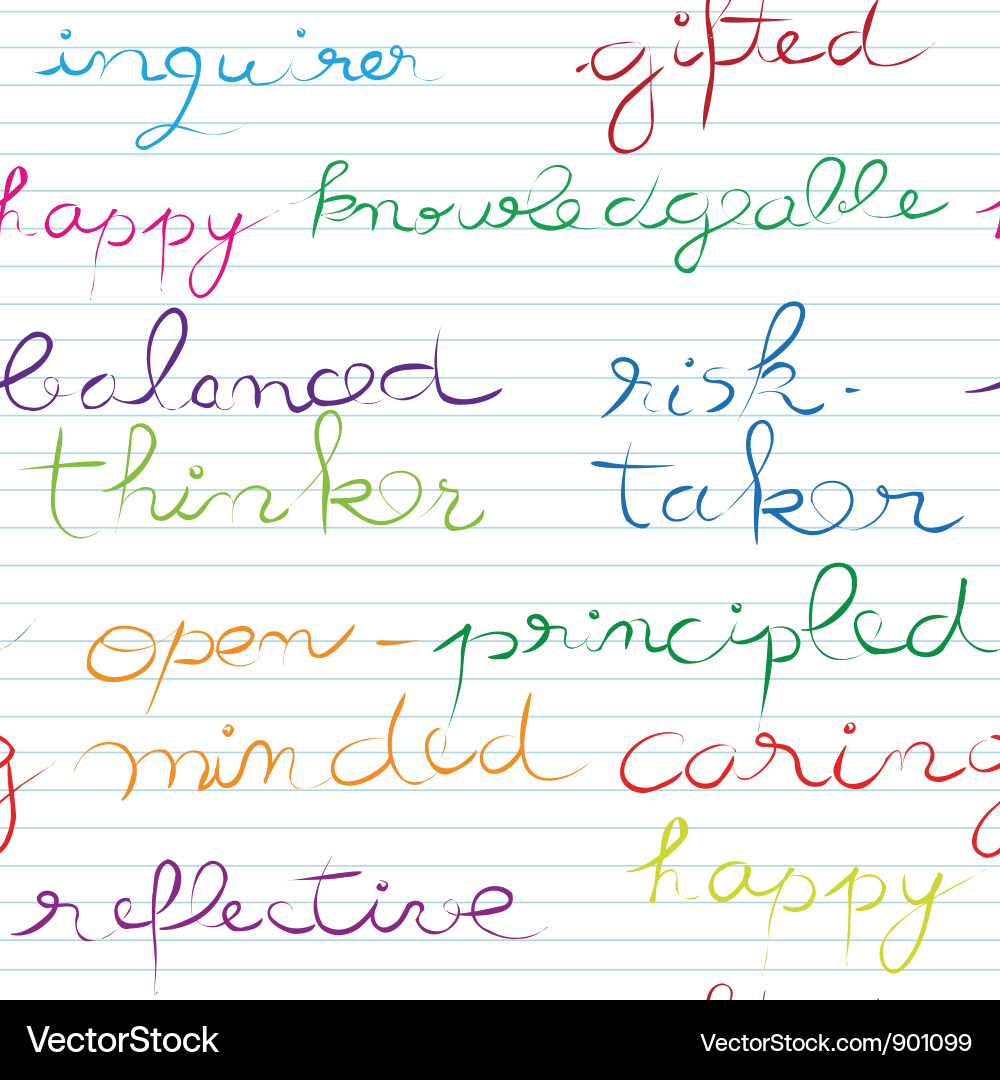 inquirer gifted
happy knowledgeable
balanced risk-
thinker taker
open-principled
minded caring
reflective happy
VectorStock VectorStock.com/901099